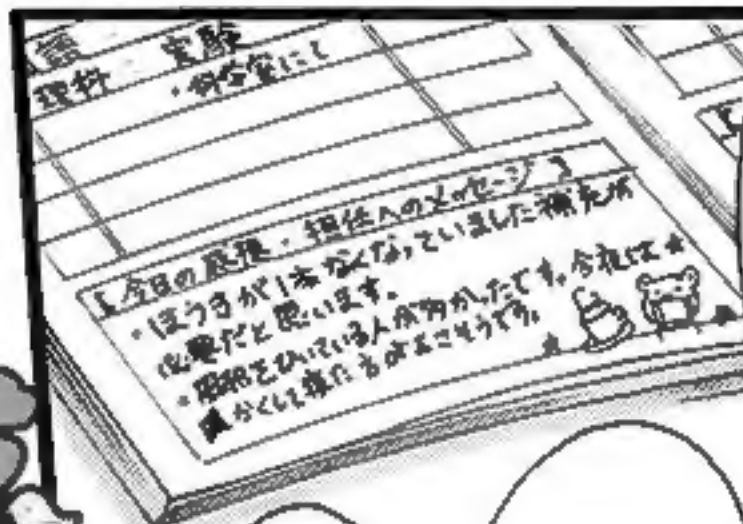 理科 実験
・科学室にて
【今日の感想・担任へのメッセージ】
・ほうきが1本なくなっていました補充が
必要だと思います。
・風邪をひいている人が多かったです。今夜は
かくして寝た方がよさそうです。